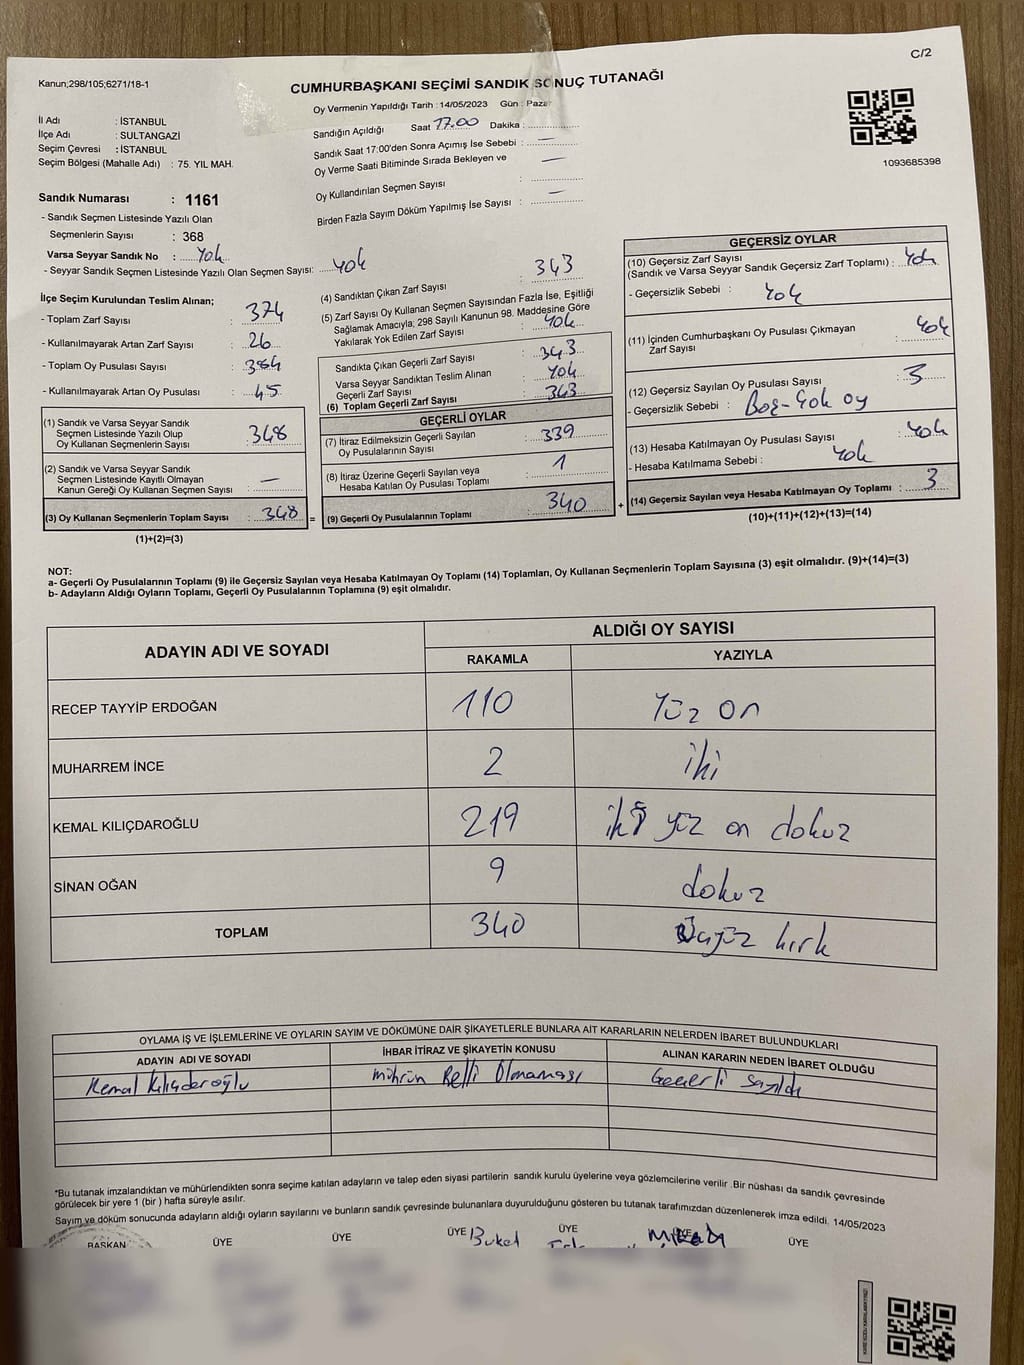 C/2
Kanun;298/105;6271/18-1
CUMHURBAŞKANI SEÇİMİ SANDIK SONUÇ TUTANAĞI
Oy Vermenin Yapıldığı Tarih : 14/05/2023 Gün : Pazar
İl Adı : İSTANBUL
İlçe Adı : SULTANGAZİ
Seçim Çevresi : İSTANBUL
Seçim Bölgesi (Mahalle Adı) : 75. YIL MAH.
Sandığın Açıldığı Saat 17.00 Dakika :
Sandık Saat 17:00'den Sonra Açımış İse Sebebi : —
Oy Verme Saati Bitiminde Sırada Bekleyen ve —
Oy Kullandırılan Seçmen Sayısı :
Birden Fazla Sayım Döküm Yapılmış İse Sayısı : —
1093685398
Sandık Numarası : 1161
- Sandık Seçmen Listesinde Yazılı Olan
Seçmenlerin Sayısı : 368
Varsa Seyyar Sandık No : Yok
- Seyyar Sandık Seçmen Listesinde Yazılı Olan Seçmen Sayısı: Yok
İlçe Seçim Kurulundan Teslim Alınan;
- Toplam Zarf Sayısı : 374
- Kullanılmayarak Artan Zarf Sayısı : 26
- Toplam Oy Pusulası Sayısı : 384
- Kullanılmayarak Artan Oy Pusulası : 45
(1) Sandık ve Varsa Seyyar Sandık
Seçmen Listesinde Yazılı Olup
Oy Kullanan Seçmenlerin Sayısı : 348
(2) Sandık ve Varsa Seyyar Sandık
Seçmen Listesinde Kayıtlı Olmayan
Kanun Gereği Oy Kullanan Seçmen Sayısı : —
(3) Oy Kullanan Seçmenlerin Toplam Sayısı : 348
(1)+(2)=(3)
(4) Sandıktan Çıkan Zarf Sayısı : 343
(5) Zarf Sayısı Oy Kullanan Seçmen Sayısından Fazla İse, Eşitliği
Sağlamak Amacıyla; 298 Sayılı Kanunun 98. Maddesine Göre
Yakılarak Yok Edilen Zarf Sayısı : Yok
Sandıkta Çıkan Geçerli Zarf Sayısı : 343
Varsa Seyyar Sandıktan Teslim Alınan
Geçerli Zarf Sayısı : Yok
(6) Toplam Geçerli Zarf Sayısı : 343
=
GEÇERLİ OYLAR
(7) İtiraz Edilmeksizin Geçerli Sayılan
Oy Pusulalarının Sayısı : 339
(8) İtiraz Üzerine Geçerli Sayılan veya
Hesaba Katılan Oy Pusulası Toplamı : 1
(9) Geçerli Oy Pusulalarının Toplamı : 340
+
GEÇERSİZ OYLAR
(10) Geçersiz Zarf Sayısı
(Sandık ve Varsa Seyyar Sandık Geçersiz Zarf Toplamı) : Yok
- Geçersizlik Sebebi : Yok
(11) İçinden Cumhurbaşkanı Oy Pusulası Çıkmayan
Zarf Sayısı : Yok
(12) Geçersiz Sayılan Oy Pusulası Sayısı : 3
- Geçersizlik Sebebi : Boş-Çok oy
(13) Hesaba Katılmayan Oy Pusulası Sayısı : Yok
- Hesaba Katılmama Sebebi : Yok
(14) Geçersiz Sayılan veya Hesaba Katılmayan Oy Toplamı : 3
(10)+(11)+(12)+(13)=(14)
NOT:
a- Geçerli Oy Pusulalarının Toplamı (9) ile Geçersiz Sayılan veya Hesaba Katılmayan Oy Toplamı (14) Toplamları, Oy Kullanan Seçmenlerin Toplam Sayısına (3) eşit olmalıdır. (9)+(14)=(3)
b- Adayların Aldığı Oyların Toplamı, Geçerli Oy Pusulalarının Toplamına (9) eşit olmalıdır.
ADAYIN ADI VE SOYADI ALDIĞI OY SAYISI
RAKAMLA YAZIYLA
RECEP TAYYİP ERDOĞAN 110 Yüz on
MUHARREM İNCE 2 iki
KEMAL KILIÇDAROĞLU 219 iki yüz on dokuz
SİNAN OĞAN 9 dokuz
TOPLAM 340 Üçyüz kırk
OYLAMA İŞ VE İŞLEMLERİNE VE OYLARIN SAYIM VE DÖKÜMÜNE DAİR ŞİKAYETLERLE BUNLARA AİT KARARLARIN NELERDEN İBARET BULUNDUKLARI
ADAYIN ADI VE SOYADI İHBAR İTİRAZ VE ŞİKAYETİN KONUSU ALINAN KARARIN NEDEN İBARET OLDUĞU
Kemal Kılıçderoğlu mührün Belli Olmaması Geçerli sayıldı
*Bu tutanak imzalandıktan ve mühürlendikten sonra seçime katılan adayların ve talep eden siyasi partilerin sandık kurulu üyelerine veya gözlemcilerine verilir .Bir nüshası da sandık çevresinde
görülecek bir yere 1 (bir ) hafta süreyle asılır.
Sayım ve döküm sonucunda adayların aldığı oyların sayılarını ve bunların sandık çevresinde bulunanlara duyurulduğunu gösteren bu tutanak tarafımızdan düzenlenerek imza edildi. 14/05/2023
BAŞKAN ÜYE ÜYE ÜYE Buket ÜYE ÜYE